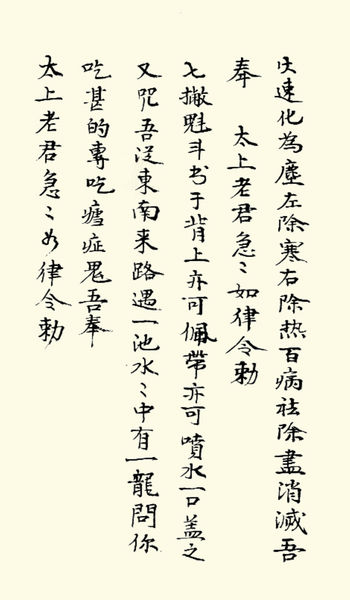 火速化為塵左除寒右除热百病祛除盡消滅吾
奉 太上老君急〻如律令勅
七撇魁斗书于背上亦可佩帶亦可噴水一口盖之
又咒吾從東南来路遇一池水〻中有一龍問你
吃甚的專吃瘧症鬼吾奉
太上老君急〻如律令勅